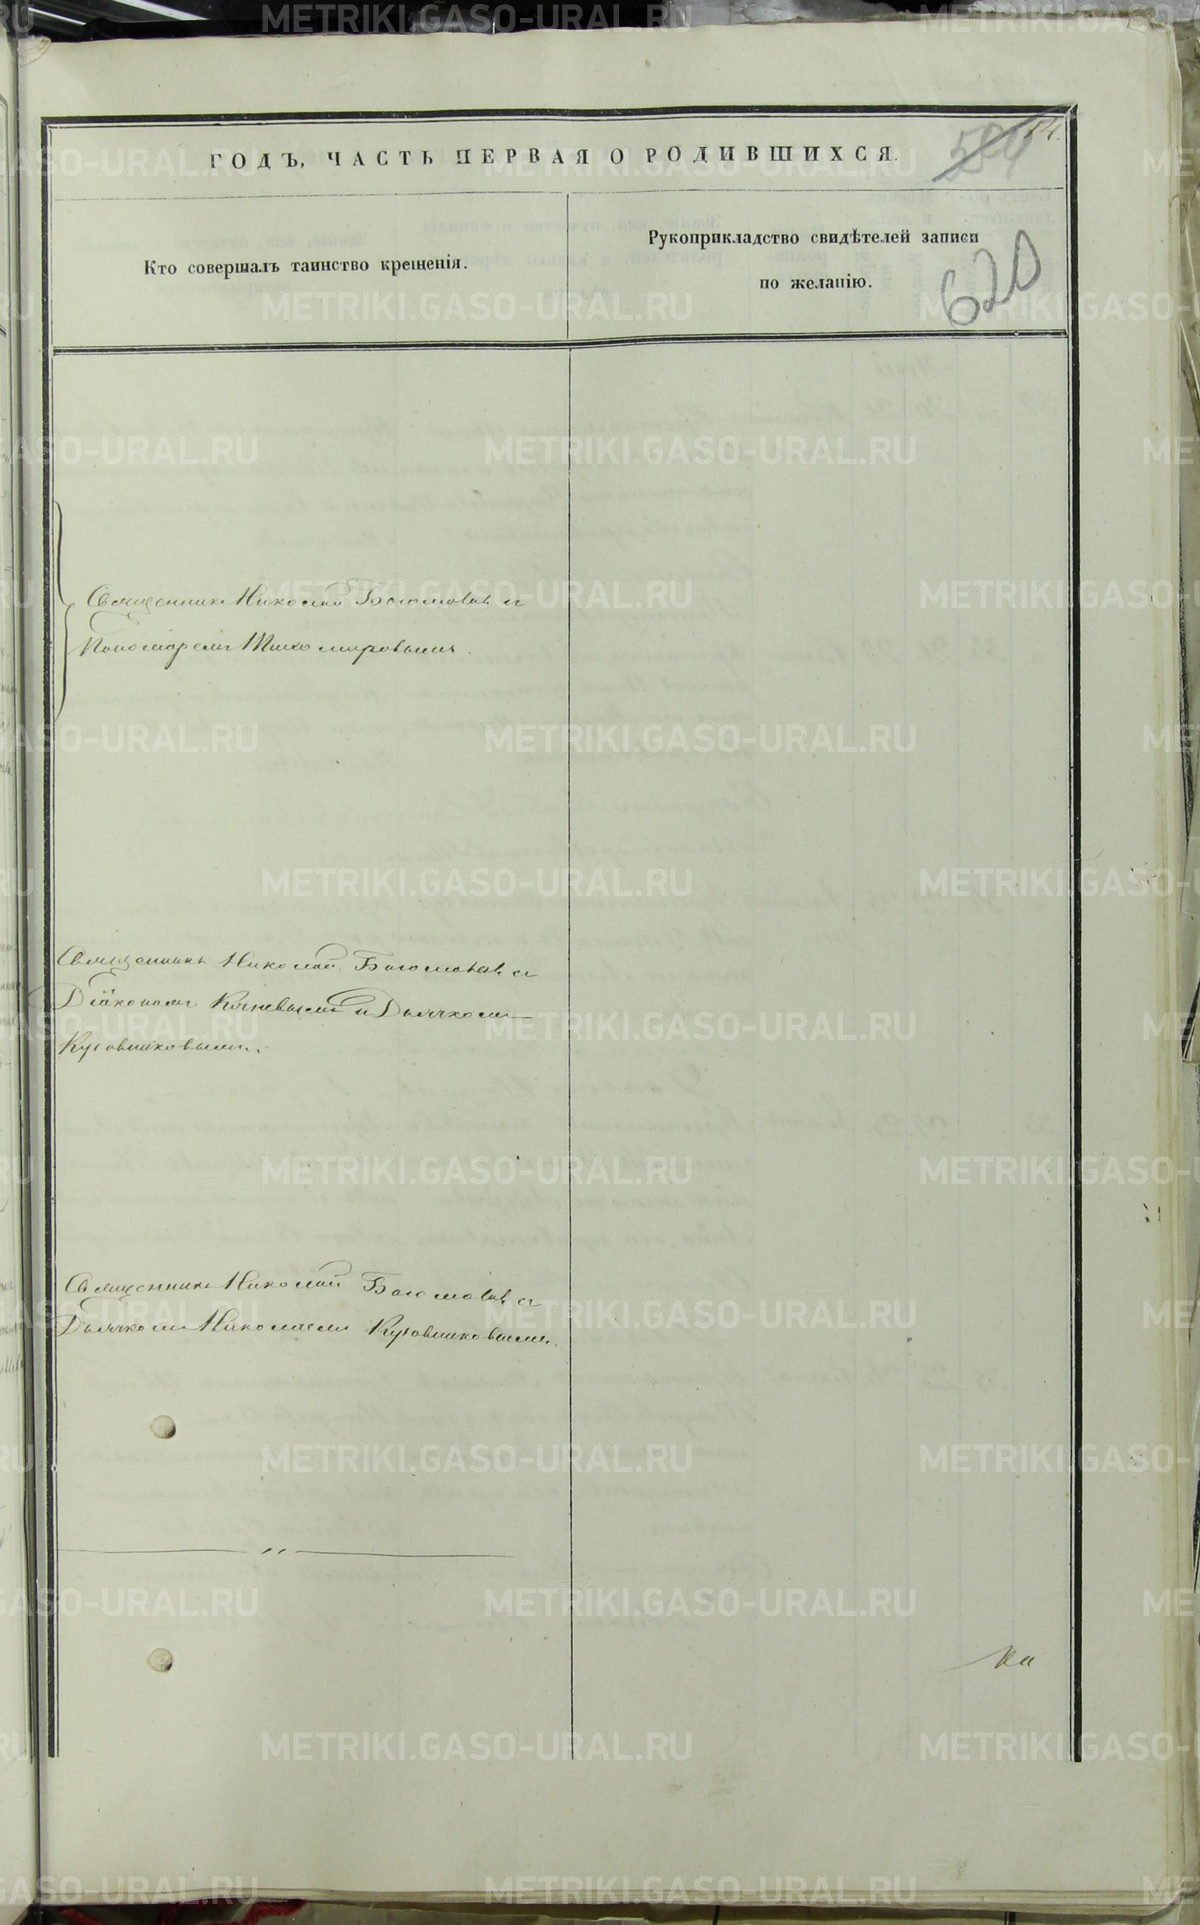 ГОДЪ, ЧАСТЬ ПЕРВАЯ О РОДИВШИХСЯ.
620
Кто совершалъ таинство крещенія.
Рукоприкладство свидѣтелей записи
по желанію.
Священникъ Николай Богомоловъ съ
Пономаремъ Тихомировымъ.
Священникъ Николай Богомоловъ съ
Діакономъ и Дьячкомъ
Кузовниковымъ.
Священникъ Николай Богомоловъ съ
Дьячкомъ Николаемъ Кузовниковымъ.
METRIKI.GASO-URAL.RU